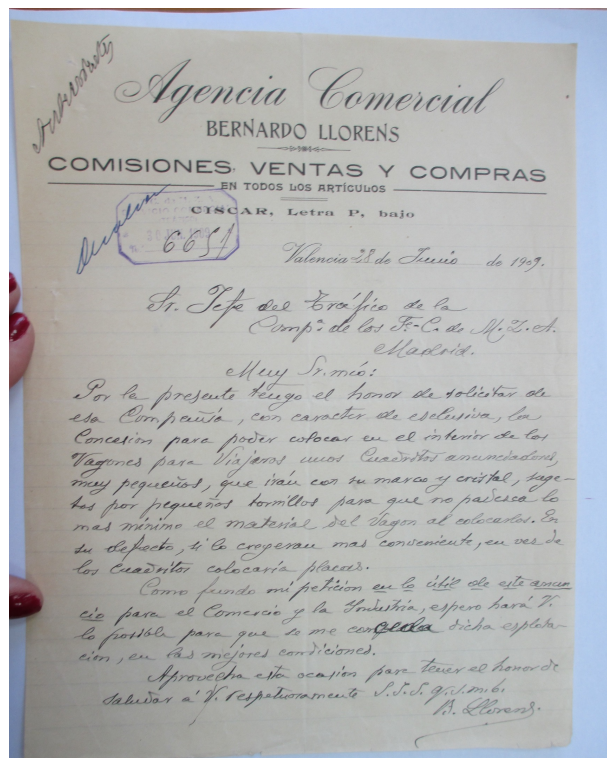 Agencia Comercial
BERNARDO LLORENS
COMISIONES, VENTAS Y COMPRAS
EN TODOS LOS ARTÍCULOS
CISCAR, Letra P, bajo
6651
Valencia 28 de Junio de 1909.
Sr. Jefe del Tráfico de la
Compª de los F-C. de M. Z. A.
Madrid.
Muy Sr. mío:
Por la presente tengo el honor de solicitar de
esa Compañía, con caracter de esclusiva, la
Concesion para poder colocar en el interior de los
Vagones para Viajeros unos Cuadritos anunciadores,
muy pequeños, que irán con su marco y cristal, suge-
tos por pequeños tornillos para que no padesca lo
mas mínimo el material del Vagon al colocarlos. En
su defecto, si lo creyeran mas conveniente, en ves de
los Cuadritos colocaría placas.
Como fundo mi petición en lo útil de este anun-
cio para el Comercio y la Industria, espero hará V.
lo posible para que se me conceda dicha esplota-
cion, en las mejores condiciones.
Aprovecha esta ocasion para tener el honor de
saludar a V. respetuosamente S.S.S. q.s.m.b.
B. Llorens.